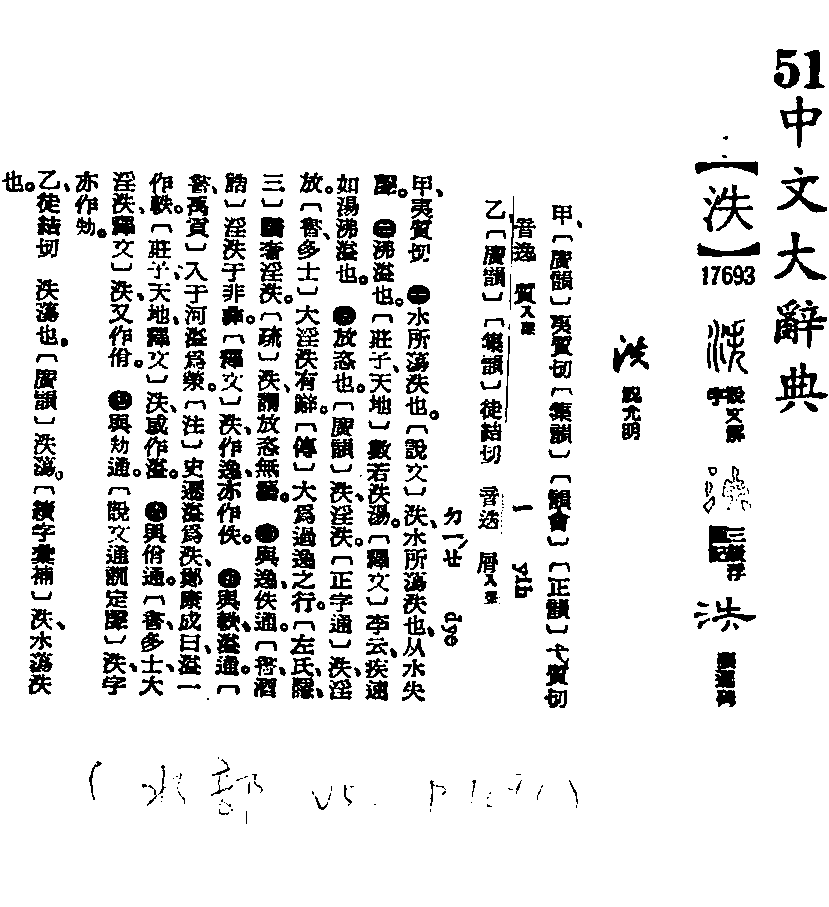 51
中文大辭典
【泆】
17693
泆 說文解字
泆 三
泆
泆 祝允明
甲、〔廣韻〕夷質切〔集韻〕〔韻會〕〔正韻〕弋質切
音逸 質入聲 ㄧ yih
乙、〔廣韻〕〔集韻〕徒結切 音迭 屑入聲
ㄉㄧㄝˊ dye
甲、夷質切 ㊀水所蕩泆也。〔說文〕泆、水所蕩泆也、从水失
聲。㊁沸溢也。〔莊子、天地〕數若泆湯。〔釋文〕李云、疾速
如湯沸溢也。㊂放恣也。〔廣韻〕泆、淫泆。〔正字通〕泆、淫
放。〔書、多士〕大淫泆有辭。〔傳〕大爲過逸之行。〔左氏、隱、
三〕驕奢淫泆。〔疏〕泆、謂放恣無藝。㊃與逸、佚通。〔書、酒
誥〕淫泆于非彝。〔釋文〕泆、作逸、亦作佚。㊄與軼、溢通。〔
書、禹貢〕入于河、溢爲滎。〔注〕史遷溢爲泆、鄭康成曰、溢一
作軼。〔莊子、天地、釋文〕泆、或作溢。㊅與佾通。〔書、多士、大
淫泆、釋文〕泆、又作佾。㊆與劮通。〔說文通訓定聲〕泆、字
亦作劮。
乙、徒結切 泆蕩也。〔廣韻〕泆、泆蕩。〔續字彙補〕泆、水蕩泆
也。
(水部 V5.